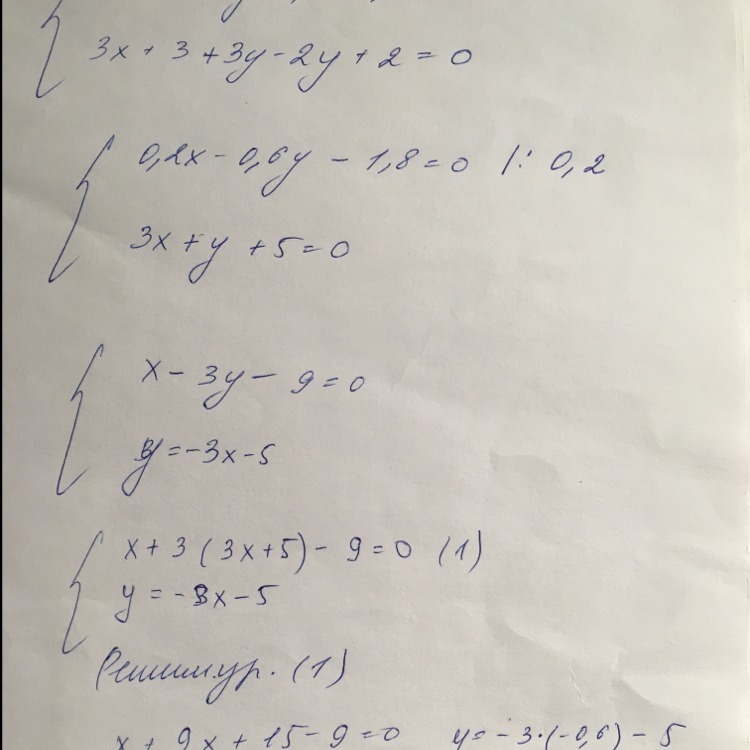 3x + 3 + 3y - 2y + 2 = 0
0,2x - 0,6y - 1,8 = 0 |: 0,2
3x + y + 5 = 0
x - 3y - 9 = 0
y = -3x - 5
x + 3 (3x + 5) - 9 = 0 (1)
y = -3x - 5
Решим ур. (1)
x + 9x + 15 - 9 = 0 y = -3·(-0,6) - 5